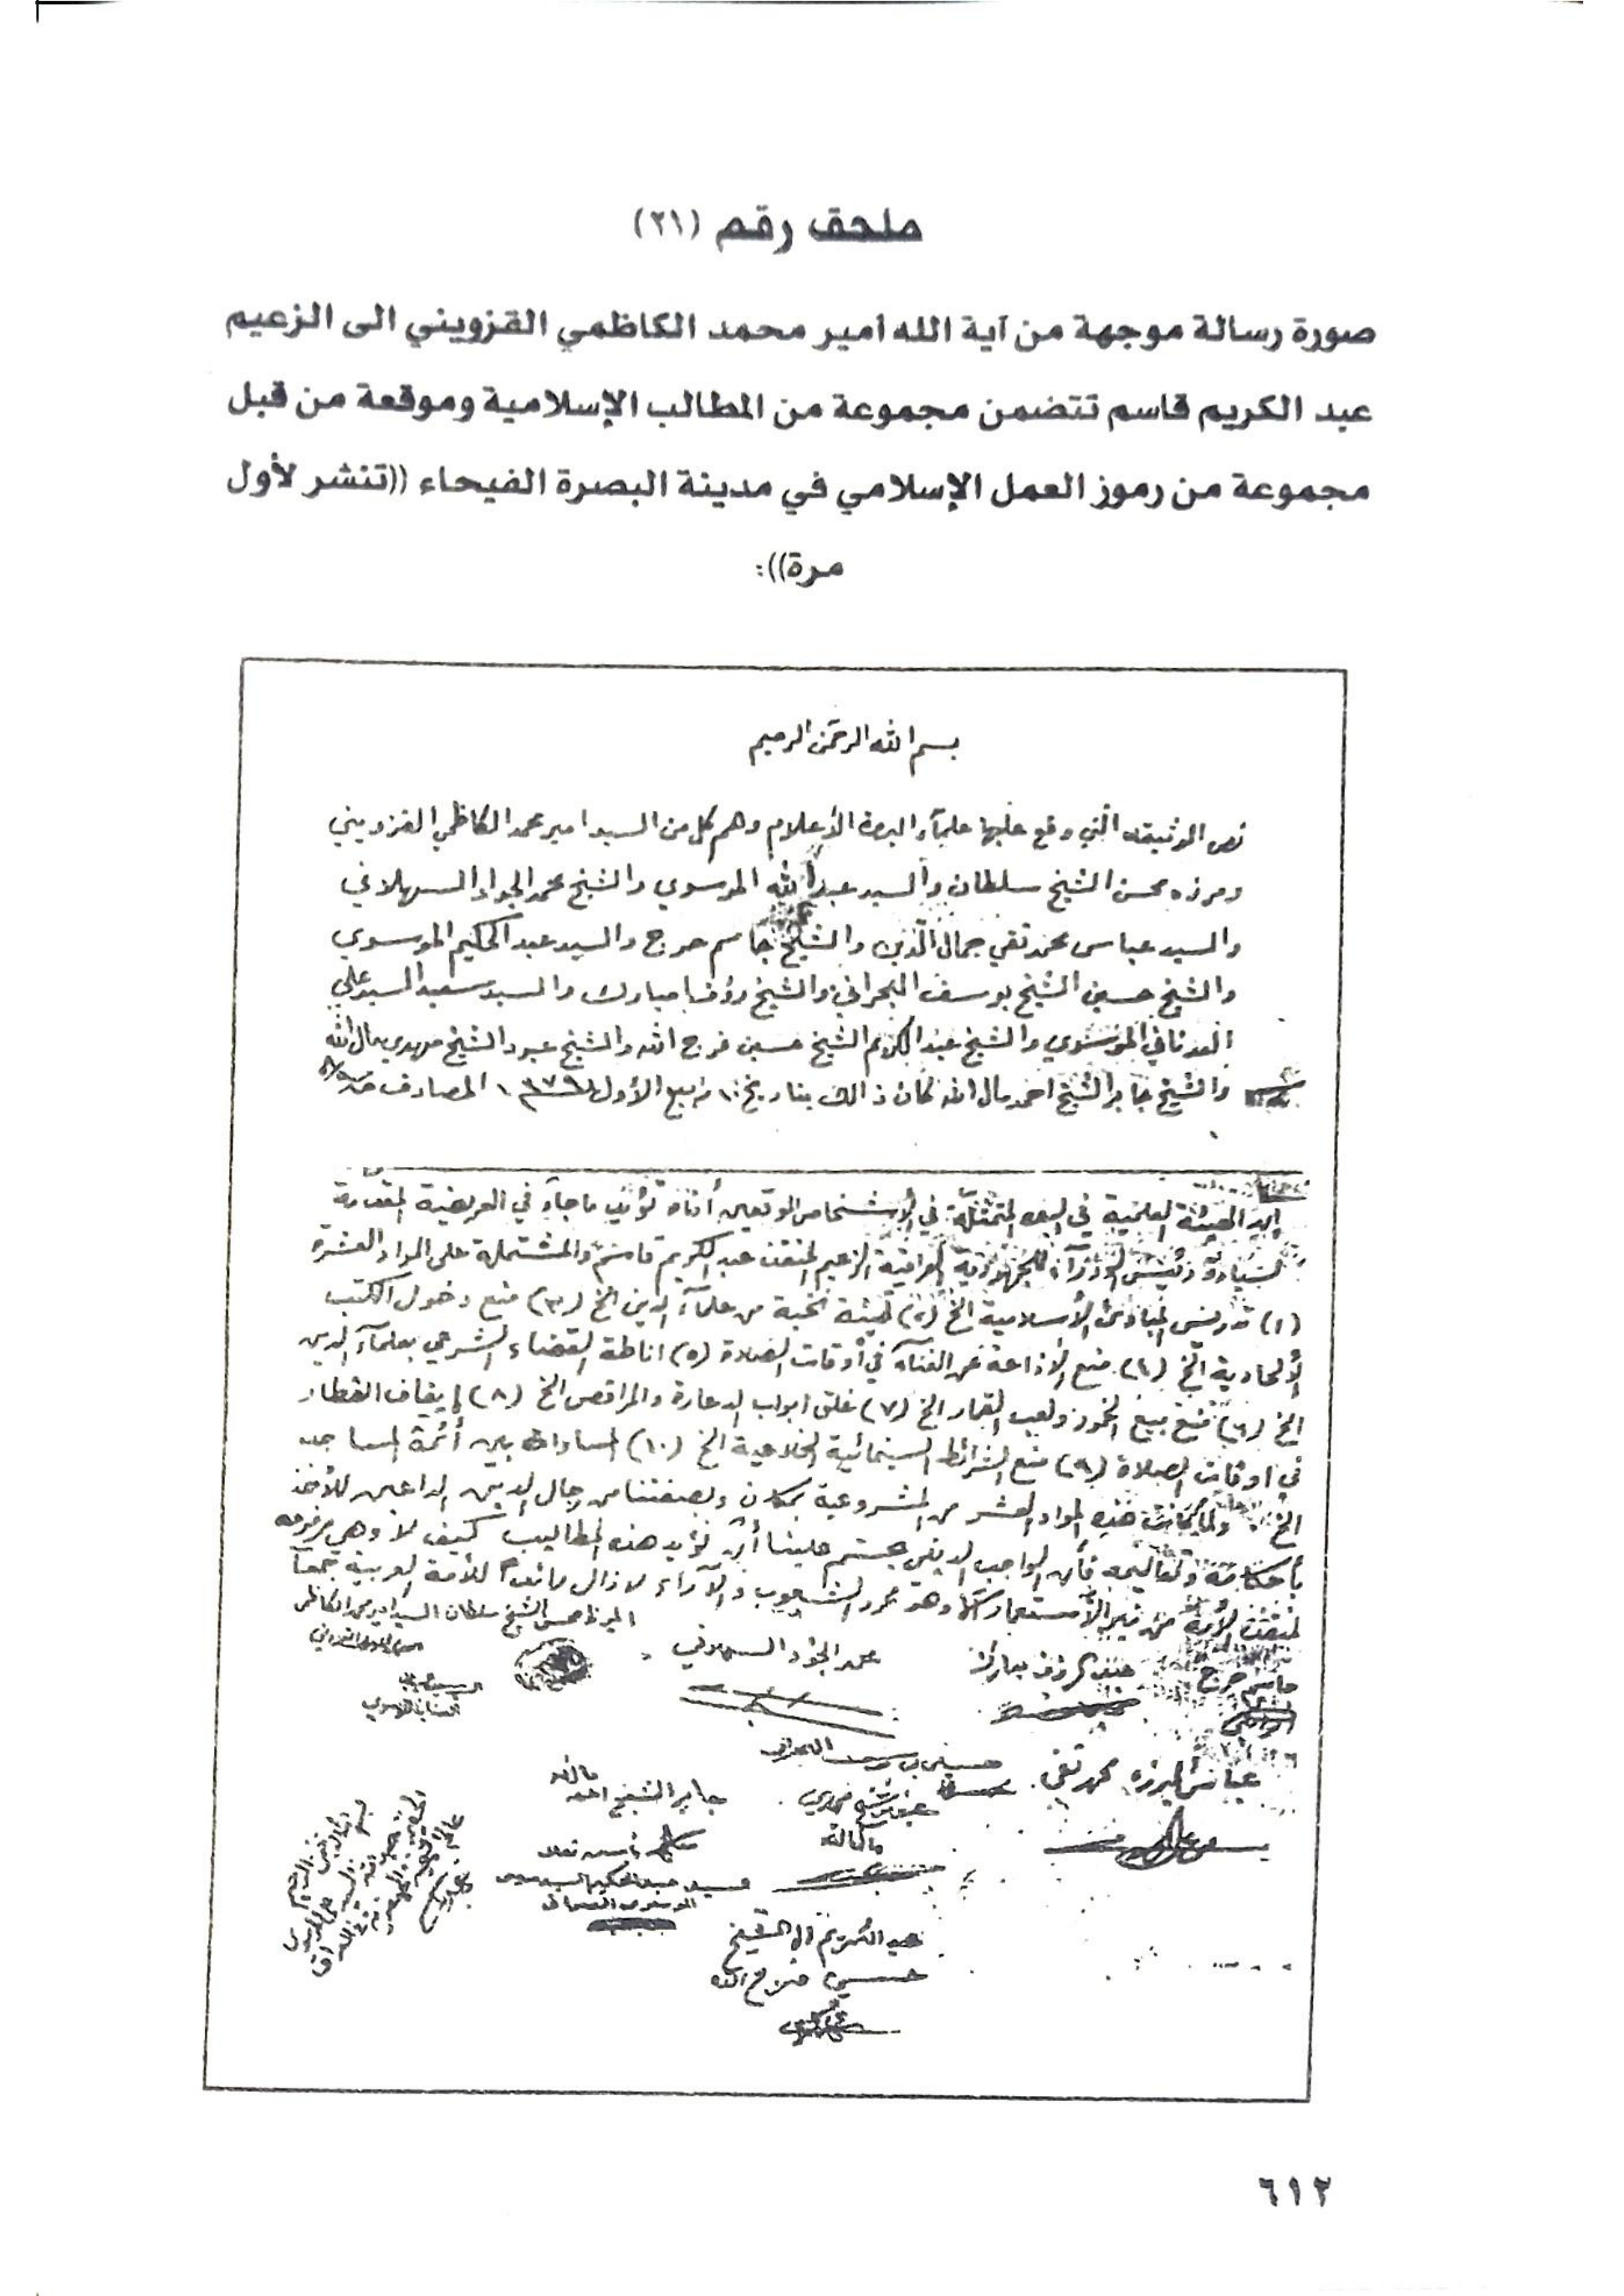 ملحق رقم (٢١)
صورة رسالة موجهة من آية الله امير محمد الكاظمي القزويني الى الزعيم
عبد الكريم قاسم تتضمن مجموعة من المطالب الإسلامية وموقعة من قبل
مجموعة من رموز العمل الإسلامي في مدينة البصرة الفيحاء ((تنشر لأول
مرة)):
بسم الله الرحمن الرحيم
نص الوثيقه التي وقع عليها علمآء البصرة الأعلام وهم كل من السيد امير محمد الكاظمي القزويني
ومرزه محسن الشيخ سلطان والسيد عبد الله الموسوي والشيخ محمد الجواد السهلاني
والسيد عباس محمد تقي جمال الدين والشيخ جاسم حرج والسيد عبد الحكيم الموسوي
والشيخ حسين الشيخ يوسف البحراني والشيخ رؤف امبارك والسيد سعيد السيد علي
العدناني الموسوي والشيخ عبد الكريم الشيخ حسين فرج الله والشيخ عبود الشيخ مهدي مال الله
والشيخ جابر الشيخ احمد مال الله كان ذالك بتاريخ ١٠ ربيع الأول ١٣٧٩ المصادف
الهيئة العلمية في البصره المتمثلة في الأشخاص الموقعين أدناه تؤيد ما جاء في العريضة المقدمة
لسيادة رئيس الوزرآء للجمهورية العراقية الزعيم المنقذ عبد الكريم قاسم والمشتملة على المواد العشرة
(١) تدريس المبادئ الأسلامية الخ (٢) تهيئة نخبة من علمآء الدين الخ (٣) منع دخول الكتب
الألحادية الخ (٤) منع الأذاعة عن الغنآء في أوقات الصلاة (٥) اناطة القضاء الشرعي بعلمآء الدين
الخ (٦) منع بيع الخمور ولعب القمار الخ (٧) غلق ابواب الدعارة والمراقص الخ (٨) إيقاف القطار
في اوقات الصلاة (٩) منع الشرائط السينمائية الخلاعية الخ (١٠) المساواة بين أئمة المساجد
الخ ولما كانت هذه المواد العشر من المشروعية بمكان وبصفتنا من رجال الدين الداعين للأخذ
بأحكامه وتعاليمه فأن الواجب الديني يحتم علينا أن نؤيد هذه المطاليب كيف لا وهي مرفوعه
لمنقذ الأمة من نير الأستعمار وهو محرر الشعوب والآراء لا زال قائداً للأمة العربية جمعآ
الميرزا محسن الشيخ سلطان السيد امير محمد الكاظمي
جاسم حرج عبد الرؤف مبارك محمد الجواد السهلاني
عباس الميرزه محمد تقي
جابر الشيخ احمد
مال الله
مال الله
عبد الكريم الشيخ
حسين فرج الله
٦١٢